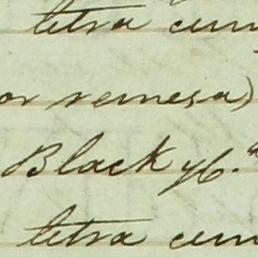 letra cum
or remesa)
Black y C.ª
letra cum